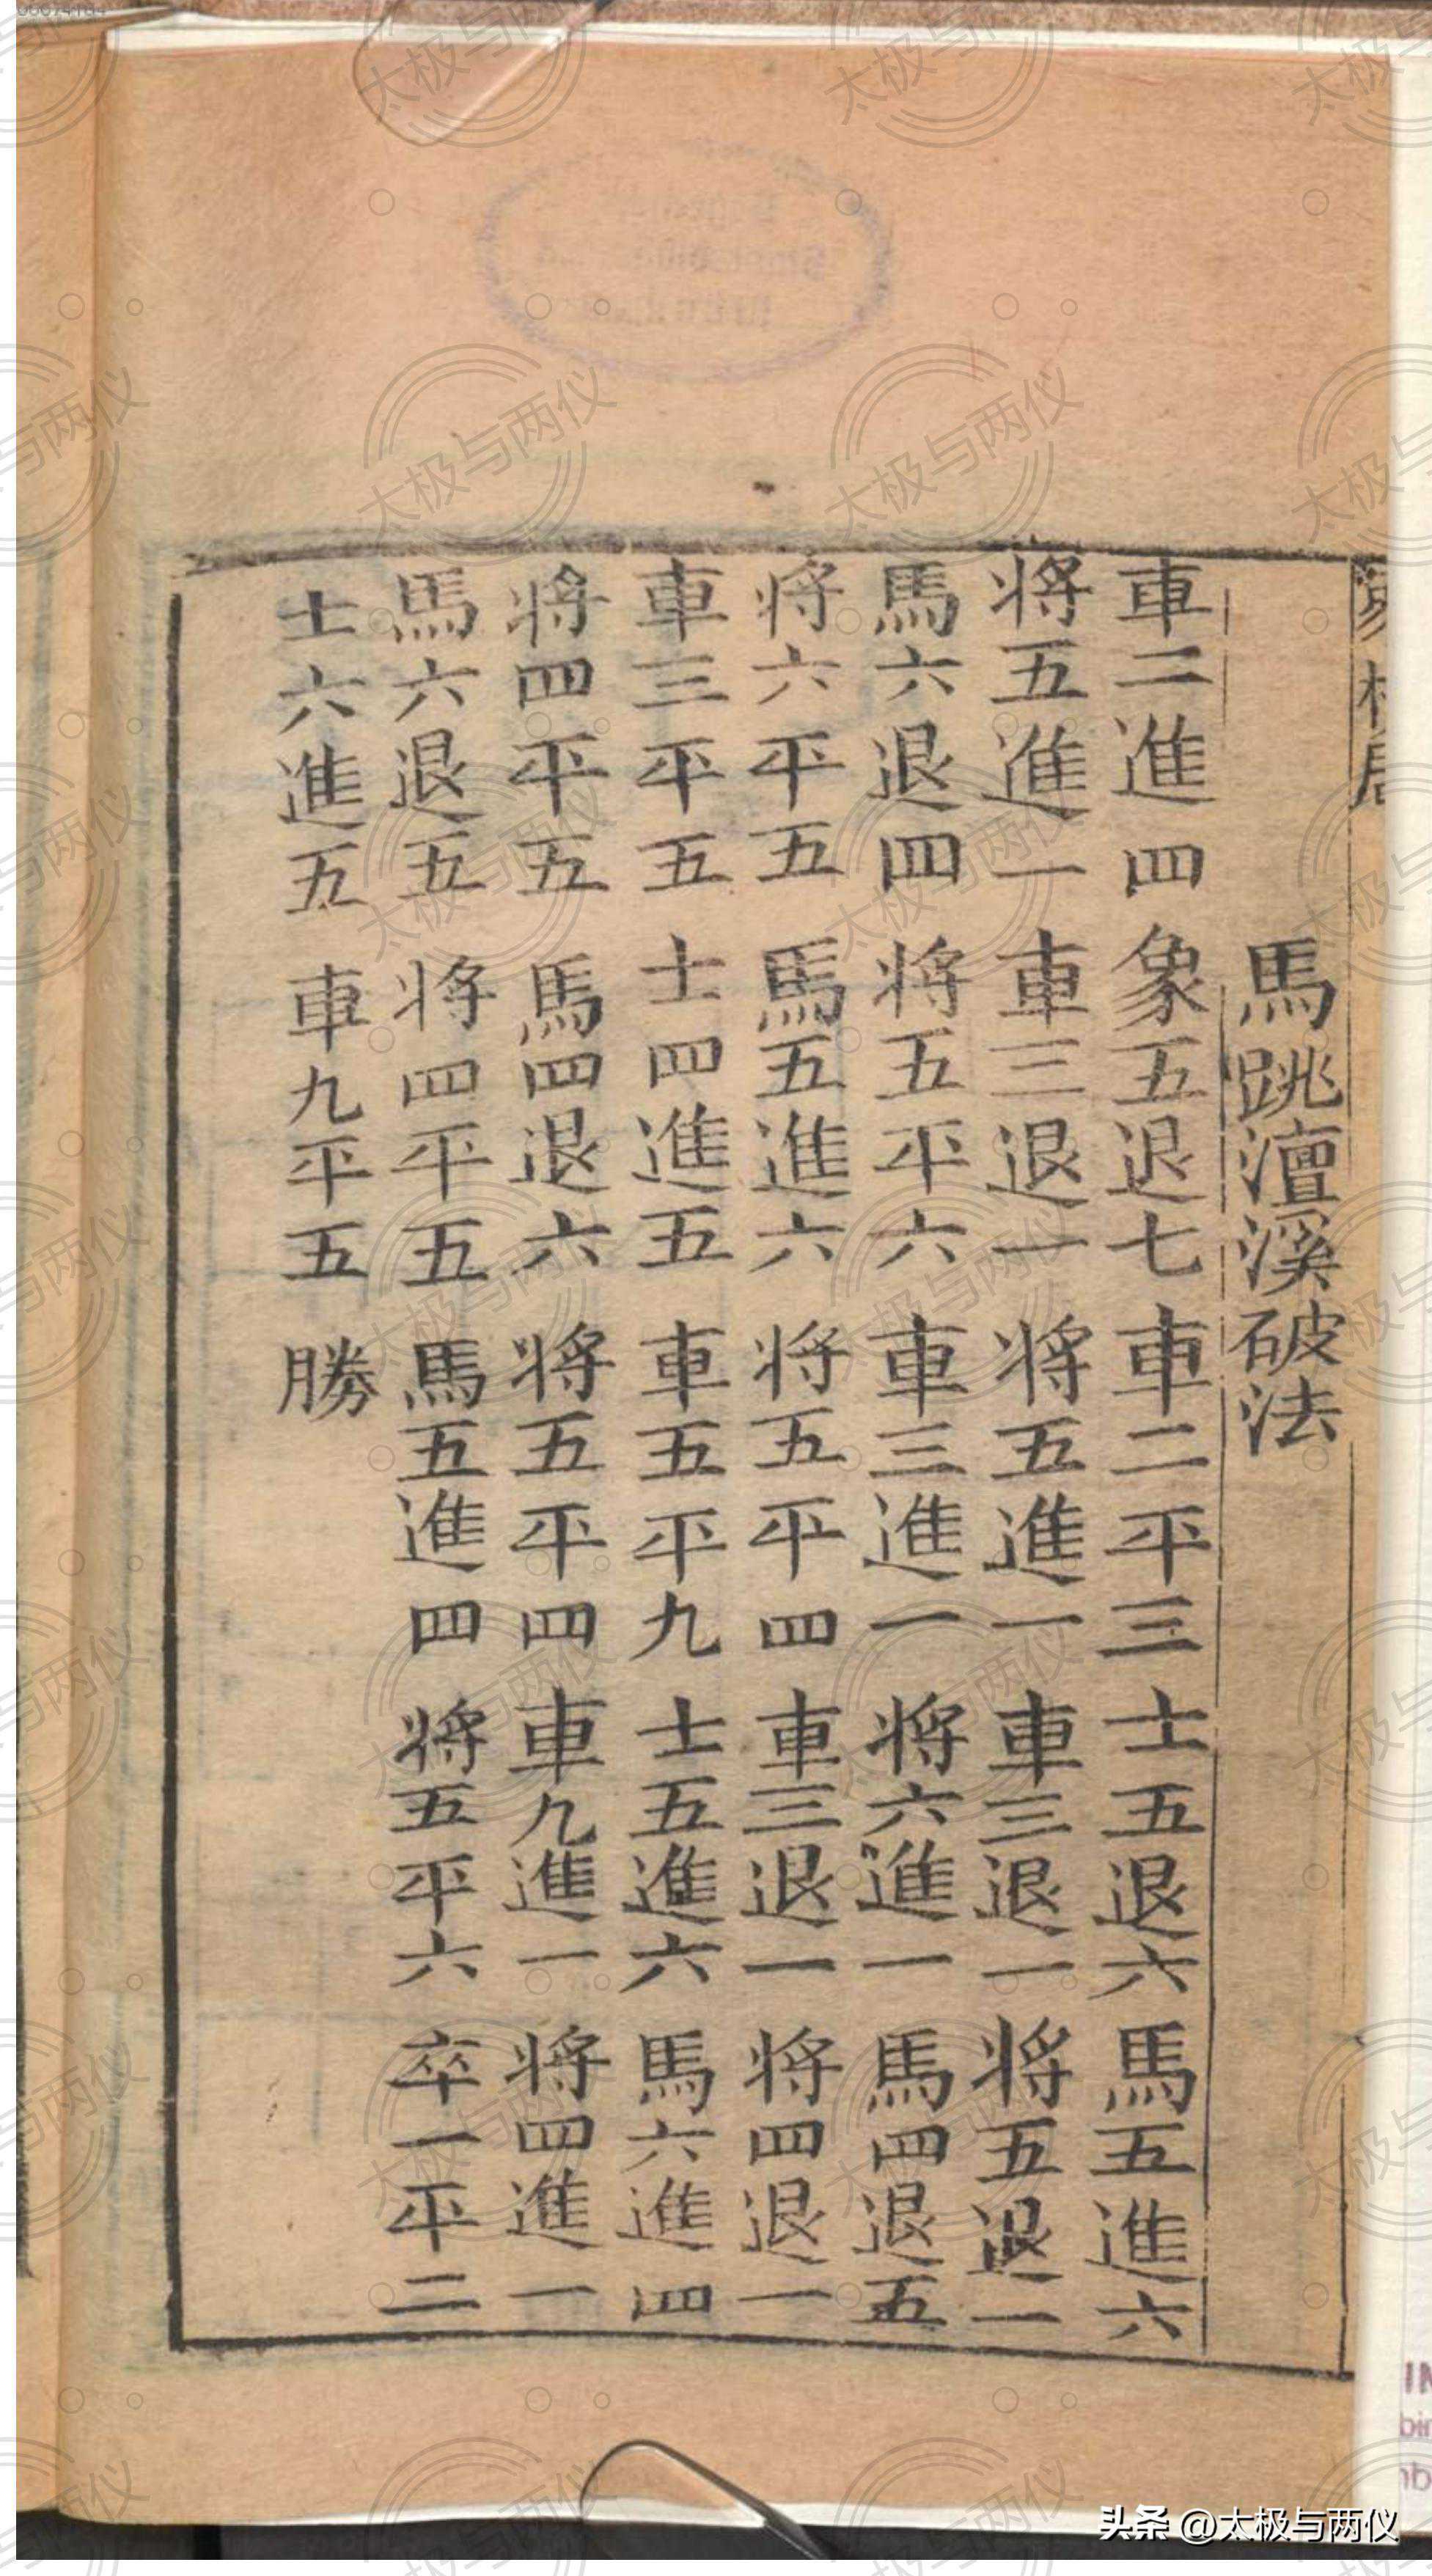 馬跳澶溪破法
車二進四 象五退七 車二平三 士五退六 馬五進六
将五進一 車三退一 将五進一 車三退一 将五退一
馬六退四 将五平六 車三進一 将六進一 馬四退五
将六平五 馬五進六 将五平四 車三退一 将四退一
車三平五 士四進五 車五平九 士五進六 馬六進四
将四平五 馬四退六 将五平四 車九進一 将四進一
馬六退五 将四平五 馬五進四 将五平六 卒一平二
士六進五 車九平五 勝
头条 @太极与两仪
太极与两仪